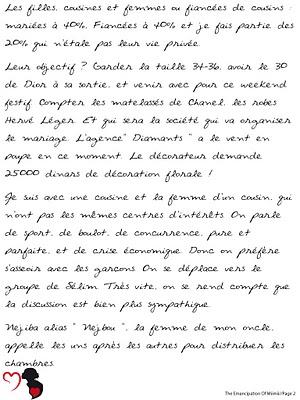 Les filles, cousines et femmes ou fiancées de cousins :
mariées à 40%, Fiancées à 40% et je fais partie des
20% qui n'étale pas leur vie privée.
Leur objectif ? Garder la taille 34-36, avoir le 30
de Dior à sa sortie, et venir avec pour ce weekend
festif. Compter les matelassés de Chanel, les robes
Hervé Léger. Et qui sera la société qui va organiser
le mariage. L'agence" Diamants " a le vent en
poupe en ce moment. Le décorateur demande
25000 dinars de décoration florale !
Je suis avec une cousine et la femme d'un cousin, qui
n'ont pas les mêmes centres d'intérêts. On parle
de sport, de boulot, de concurrence, pure et
parfaite, et de crise économique. Donc on préfère
s'asseoir avec les garçons. On se déplace vers le
groupe de Sélim. Très vite, on se rend compte que
la discussion est bien plus sympathique.
Nejiba alias " Nejbou ", la femme de mon oncle,
appelle les uns après les autres pour distribuer les
chambres.
The Emancipation Of Mimi// Page 2